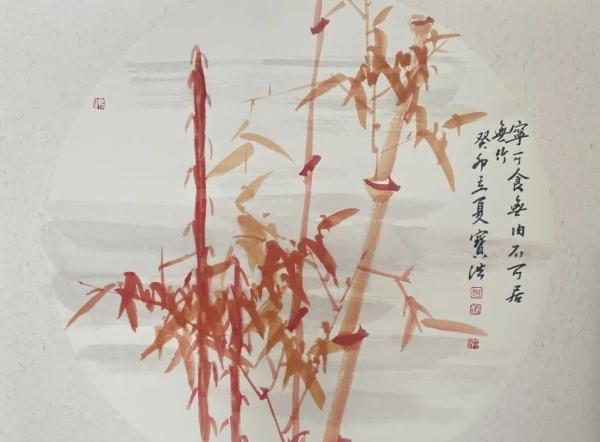 寧可食無肉不可居
無竹
癸卯立夏寶浩